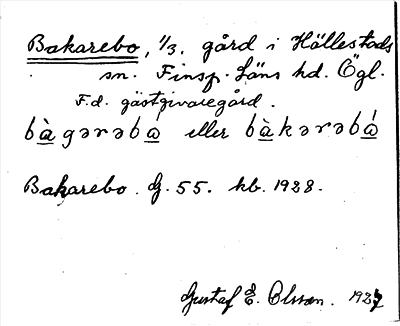 Bakarebo, 1/3. gård i Hällestads
sn. Finsp. Läns hd. Ögl.
F.d. gästgivaregård.
bàgərəbó̲ eller bàkərəbó̲
Bakarebo. G. 55. kb. 1928.
Gustaf E. Olsson. 1927